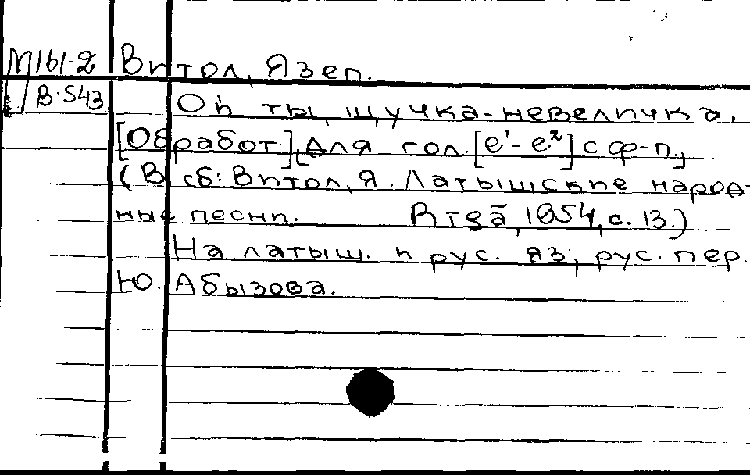 М161-2 Витол, Язеп.
В-543 Ой ты, щучка-невеличка.
[Обработ.] Для гол. [e¹-e²] с ф-п.
(В сб: Витол, Я. Латышские народ-
ные песни. 1954, с. 13.)
На латыш. и рус. яз; рус. пер.
Ю. Абызова.